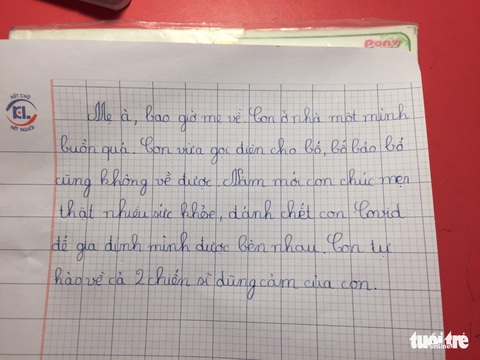 Bony
NÉT CHỮ
KL
NẾT NGƯỜI
Mẹ à, bao giờ mẹ về. Con ở nhà một mình
buồn quá. Con vừa gọi điện cho bố, bố bảo bố
cũng không về được. Năm mới con chúc mẹ
thật nhiều sức khỏe, đánh chết con Covid
để gia đình mình được bên nhau. Con tự
hào về cả 2 chiến sĩ dũng cảm của con.
tuổi trẻ
online